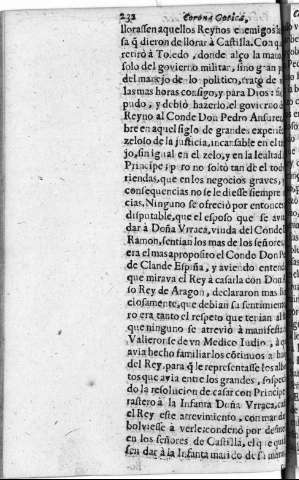 232 Corona Gotica,
llorassen aquellos Reynos enemigos la
sa q̃ dieron de llorar à Castilla. Con q
retirò à Toledo, donde alçò la mano
solo del govierno militar, sino
del manejo de lo politico, trato de
las mas horas consigo, y para Dios:
pudo, y debiò hazerlo, el govierno d
Reyno al Conde Don Pedro Ansurez
bre en aquel siglo de grandes experie
zeloso de la justicia, incansable en el
jo, sin igual en el zelo, y en la lealtad
Principe; pero no soltò tan de el tod
riendas, que en los negocios graves,
consequencias no se le diesse siempre
cias. Ninguno se ofreciò por entonces
disputable, que el esposo que se avia
dar à Doña Vrraca, viuda del Conde
Ramon, sentian los mas de los señores
era el mas aproposito el Conde Don
de Clande Espina, y aviendo entend
que mirava el Rey à casarla con Don
so Rey de Aragon, declararon mas
ciosamente, que debian su sentimient
ro era tanto el respeto que tenian al
que ninguno se atreviò à manifesta
Valieronse de vn Medico Iudio, à q
avia hecho familiar los cõtinuos
del Rey, para q̃ le representasse los
tos que avia entre los grandes,
do la resolucion de casar con Principe
rastero à la Infanta Doña Vrraca,
el Rey este atrevimiento, con mandar
bolviesse à verle: condenò por
en los señores de Castilla, el que
sen dar à la Infanta marido de su mano